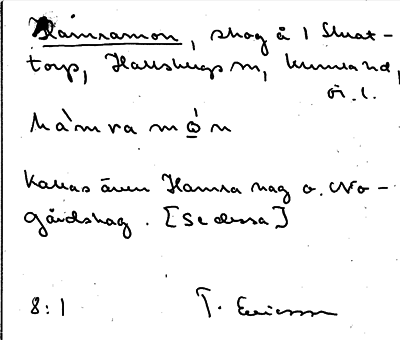 Hamramon, skog å 1 Skat-
torp, Hallsbergs sn, Kumla hd,
Ör. l.
hàmra mó̱n
Kallas även Hamra hag o. No-
gårdshag. [Se dessa]
8:1 T. Ericsson